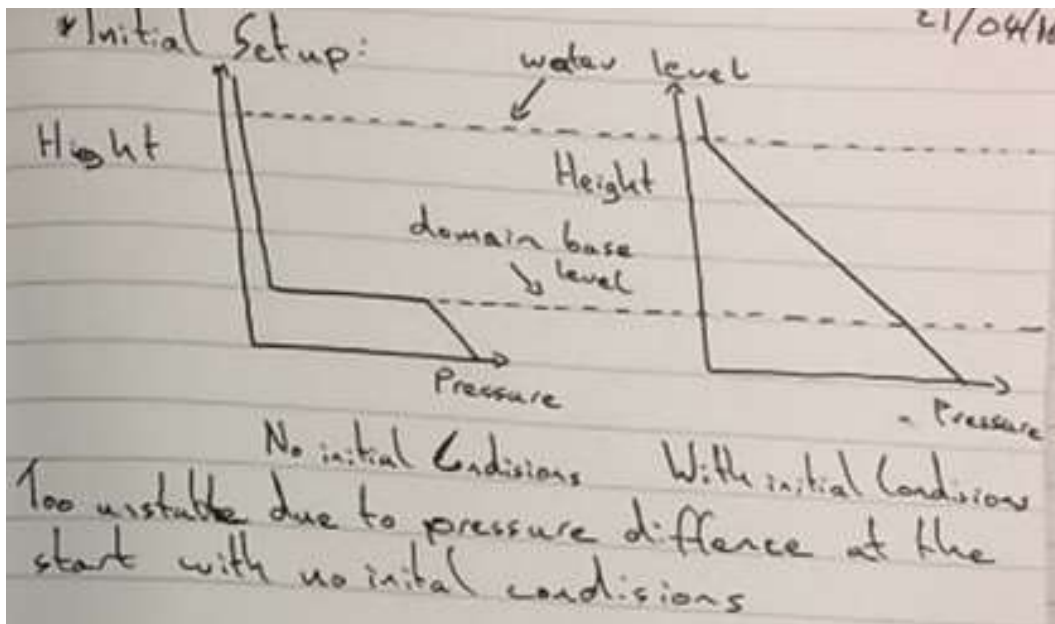 21/04/16
*Initial Setup:
water level
Hight
Height
domain base
level
Pressure
- Pressure
No initial Condisions
With initial Condisions
Too unstable due to pressure diffence at the
start with no inital condisions